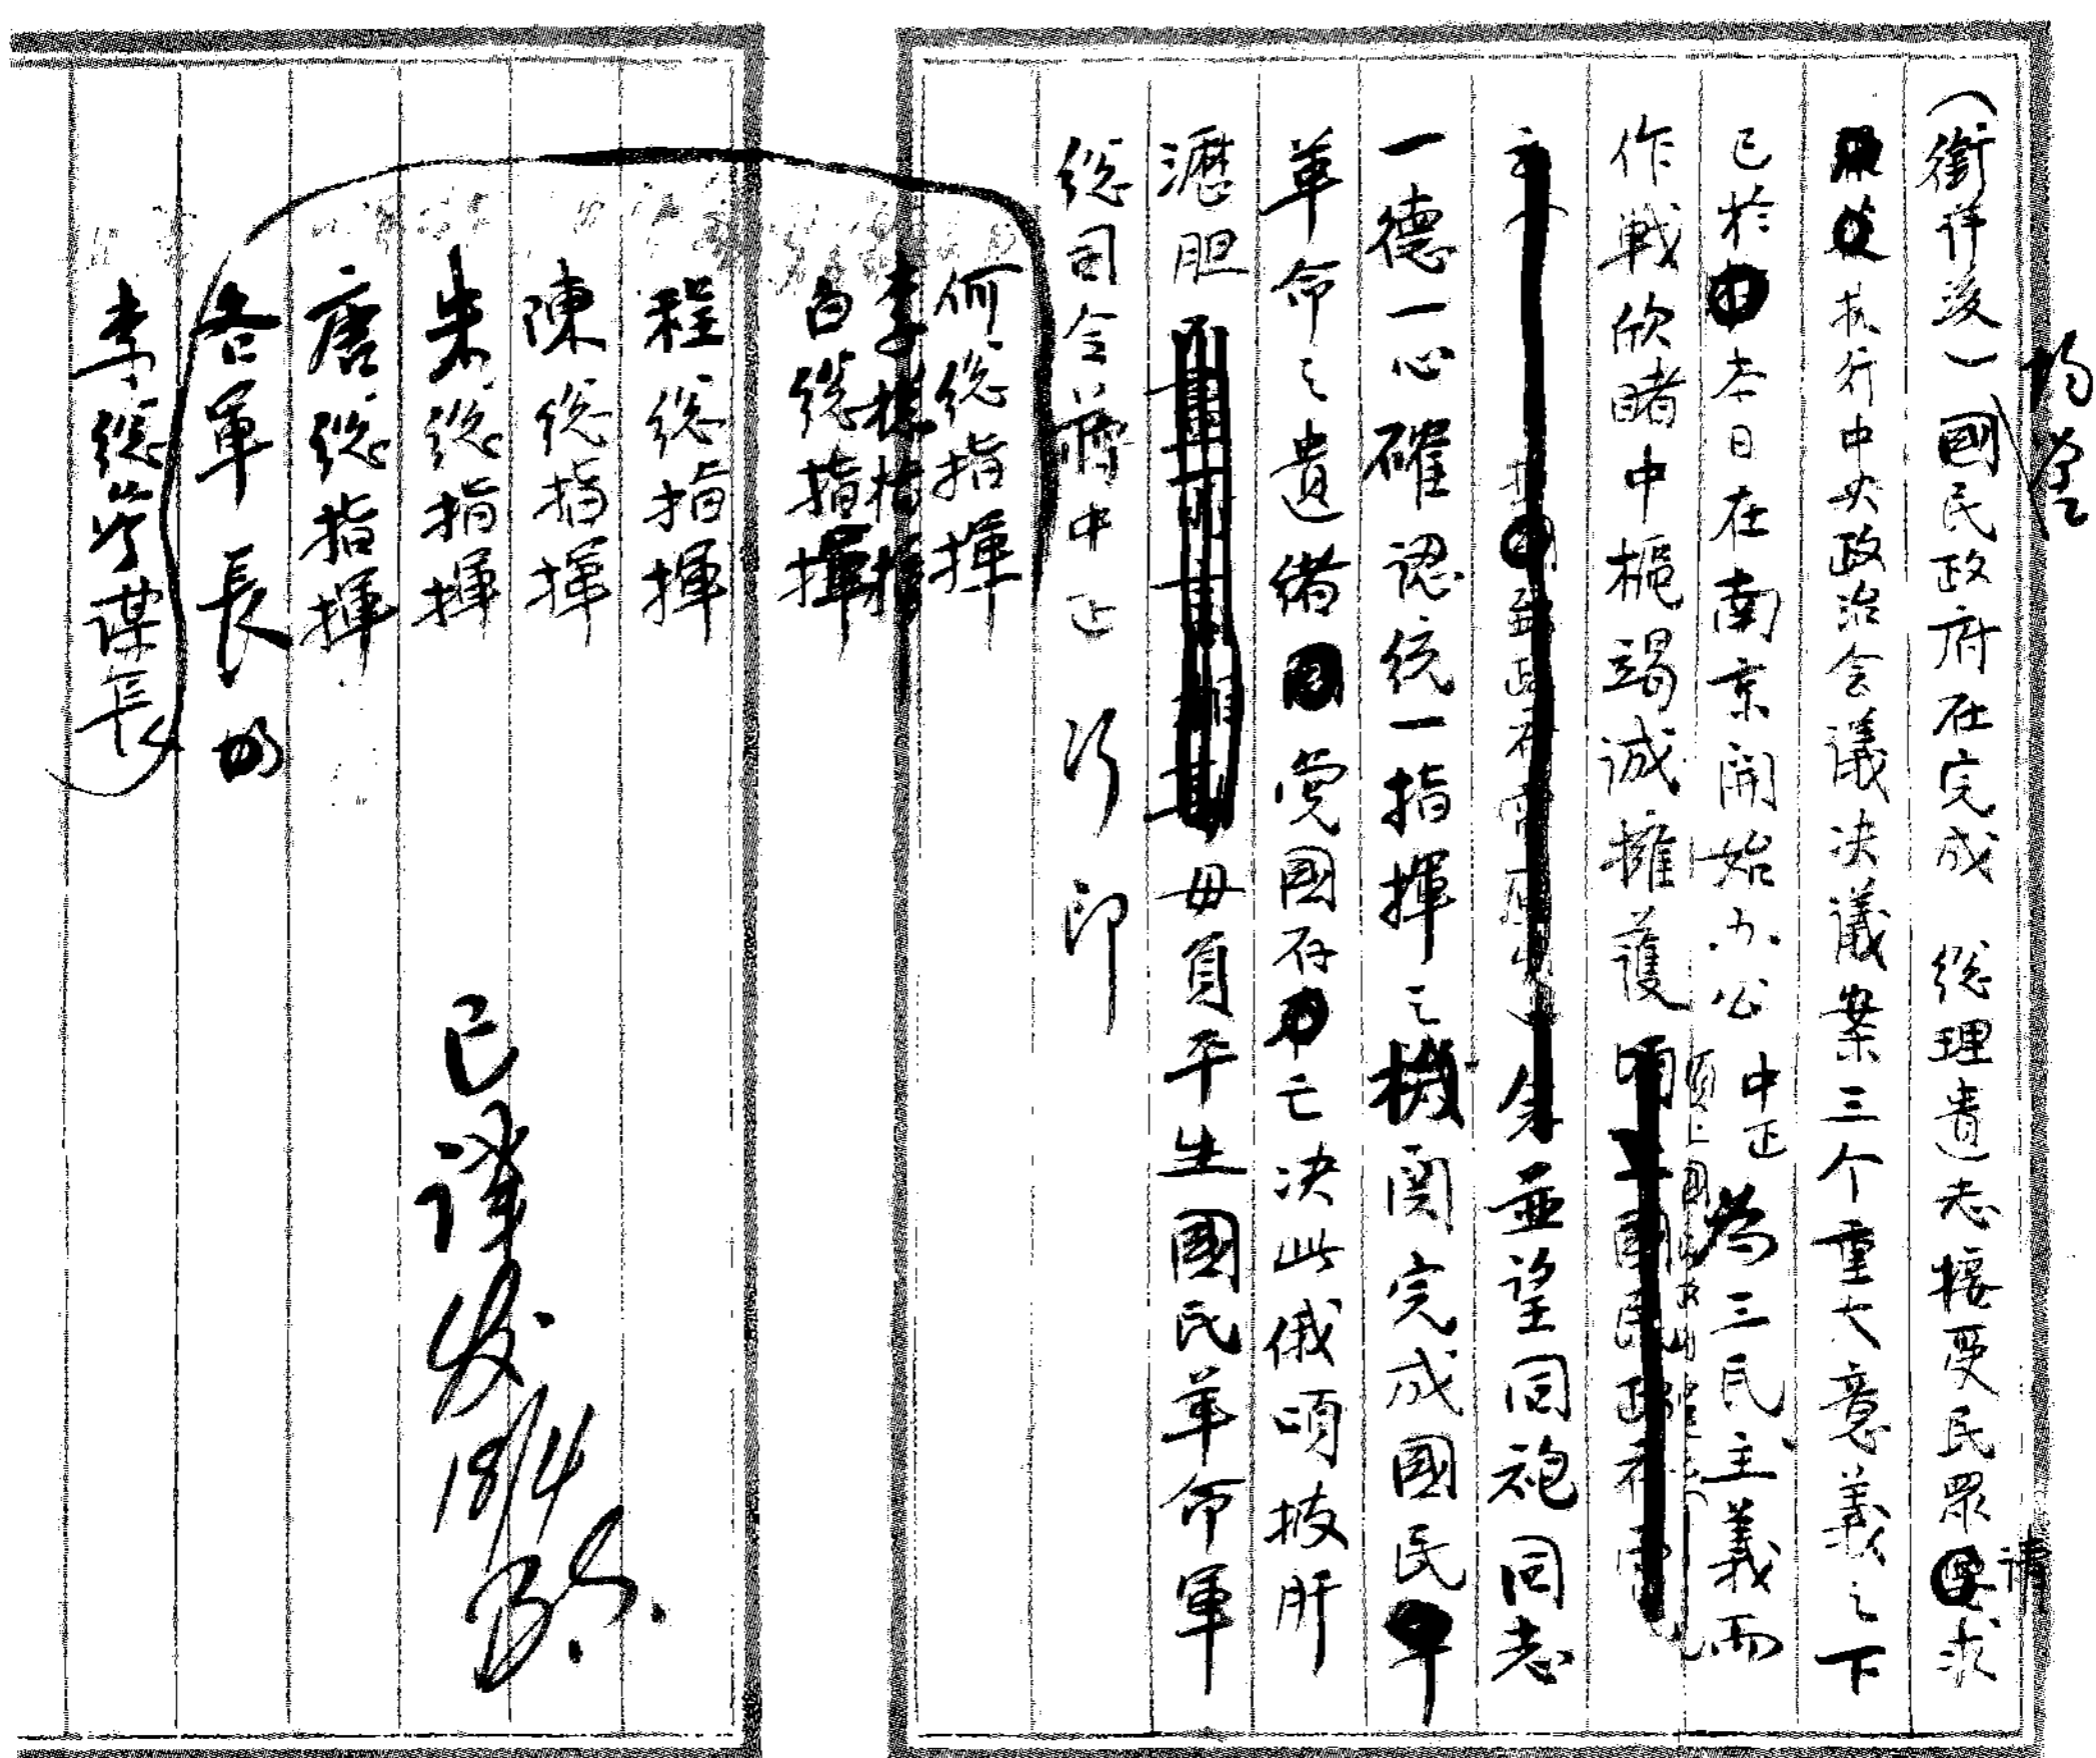 (銜併後)國民政府在完成 総理遺志接受民眾請求
执行中央政治会議決議案三个重大意義之下
已於本日在南京開始办公中正為三民主義而
作戦欣睹中樞竭誠擁護
並望同袍同志
一德一心確認統一指揮之機関完成國民
革命之遺緒党國存亡决此俄頃披肝
瀝胆毋負平生國民革命軍
総司令蔣中正 印
均鉴
何総指揮
李総指揮
白総指揮
程総指揮
陳総指揮
朱総指揮
唐総指揮
各軍長
李総参谋長
已譯发
18/4